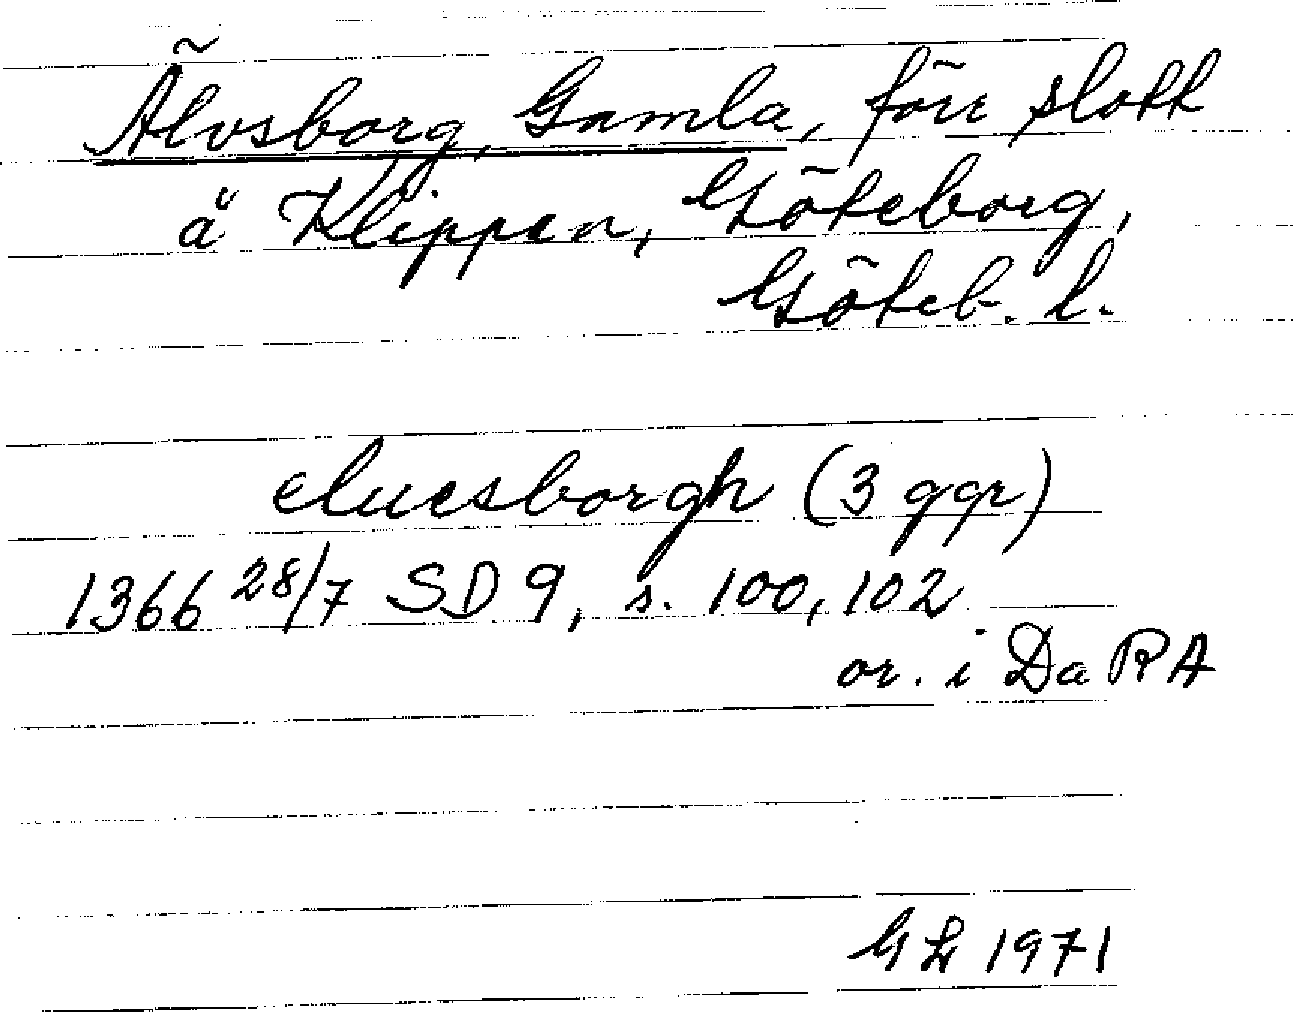 Älvsborg, Gamla, förr slott
å Klippan, Göteborg,
Göteb. l.
eluesborgh (3 ggr)
1366 28/7 SD 9, s. 100, 102
or. i Da RA
GL 1971